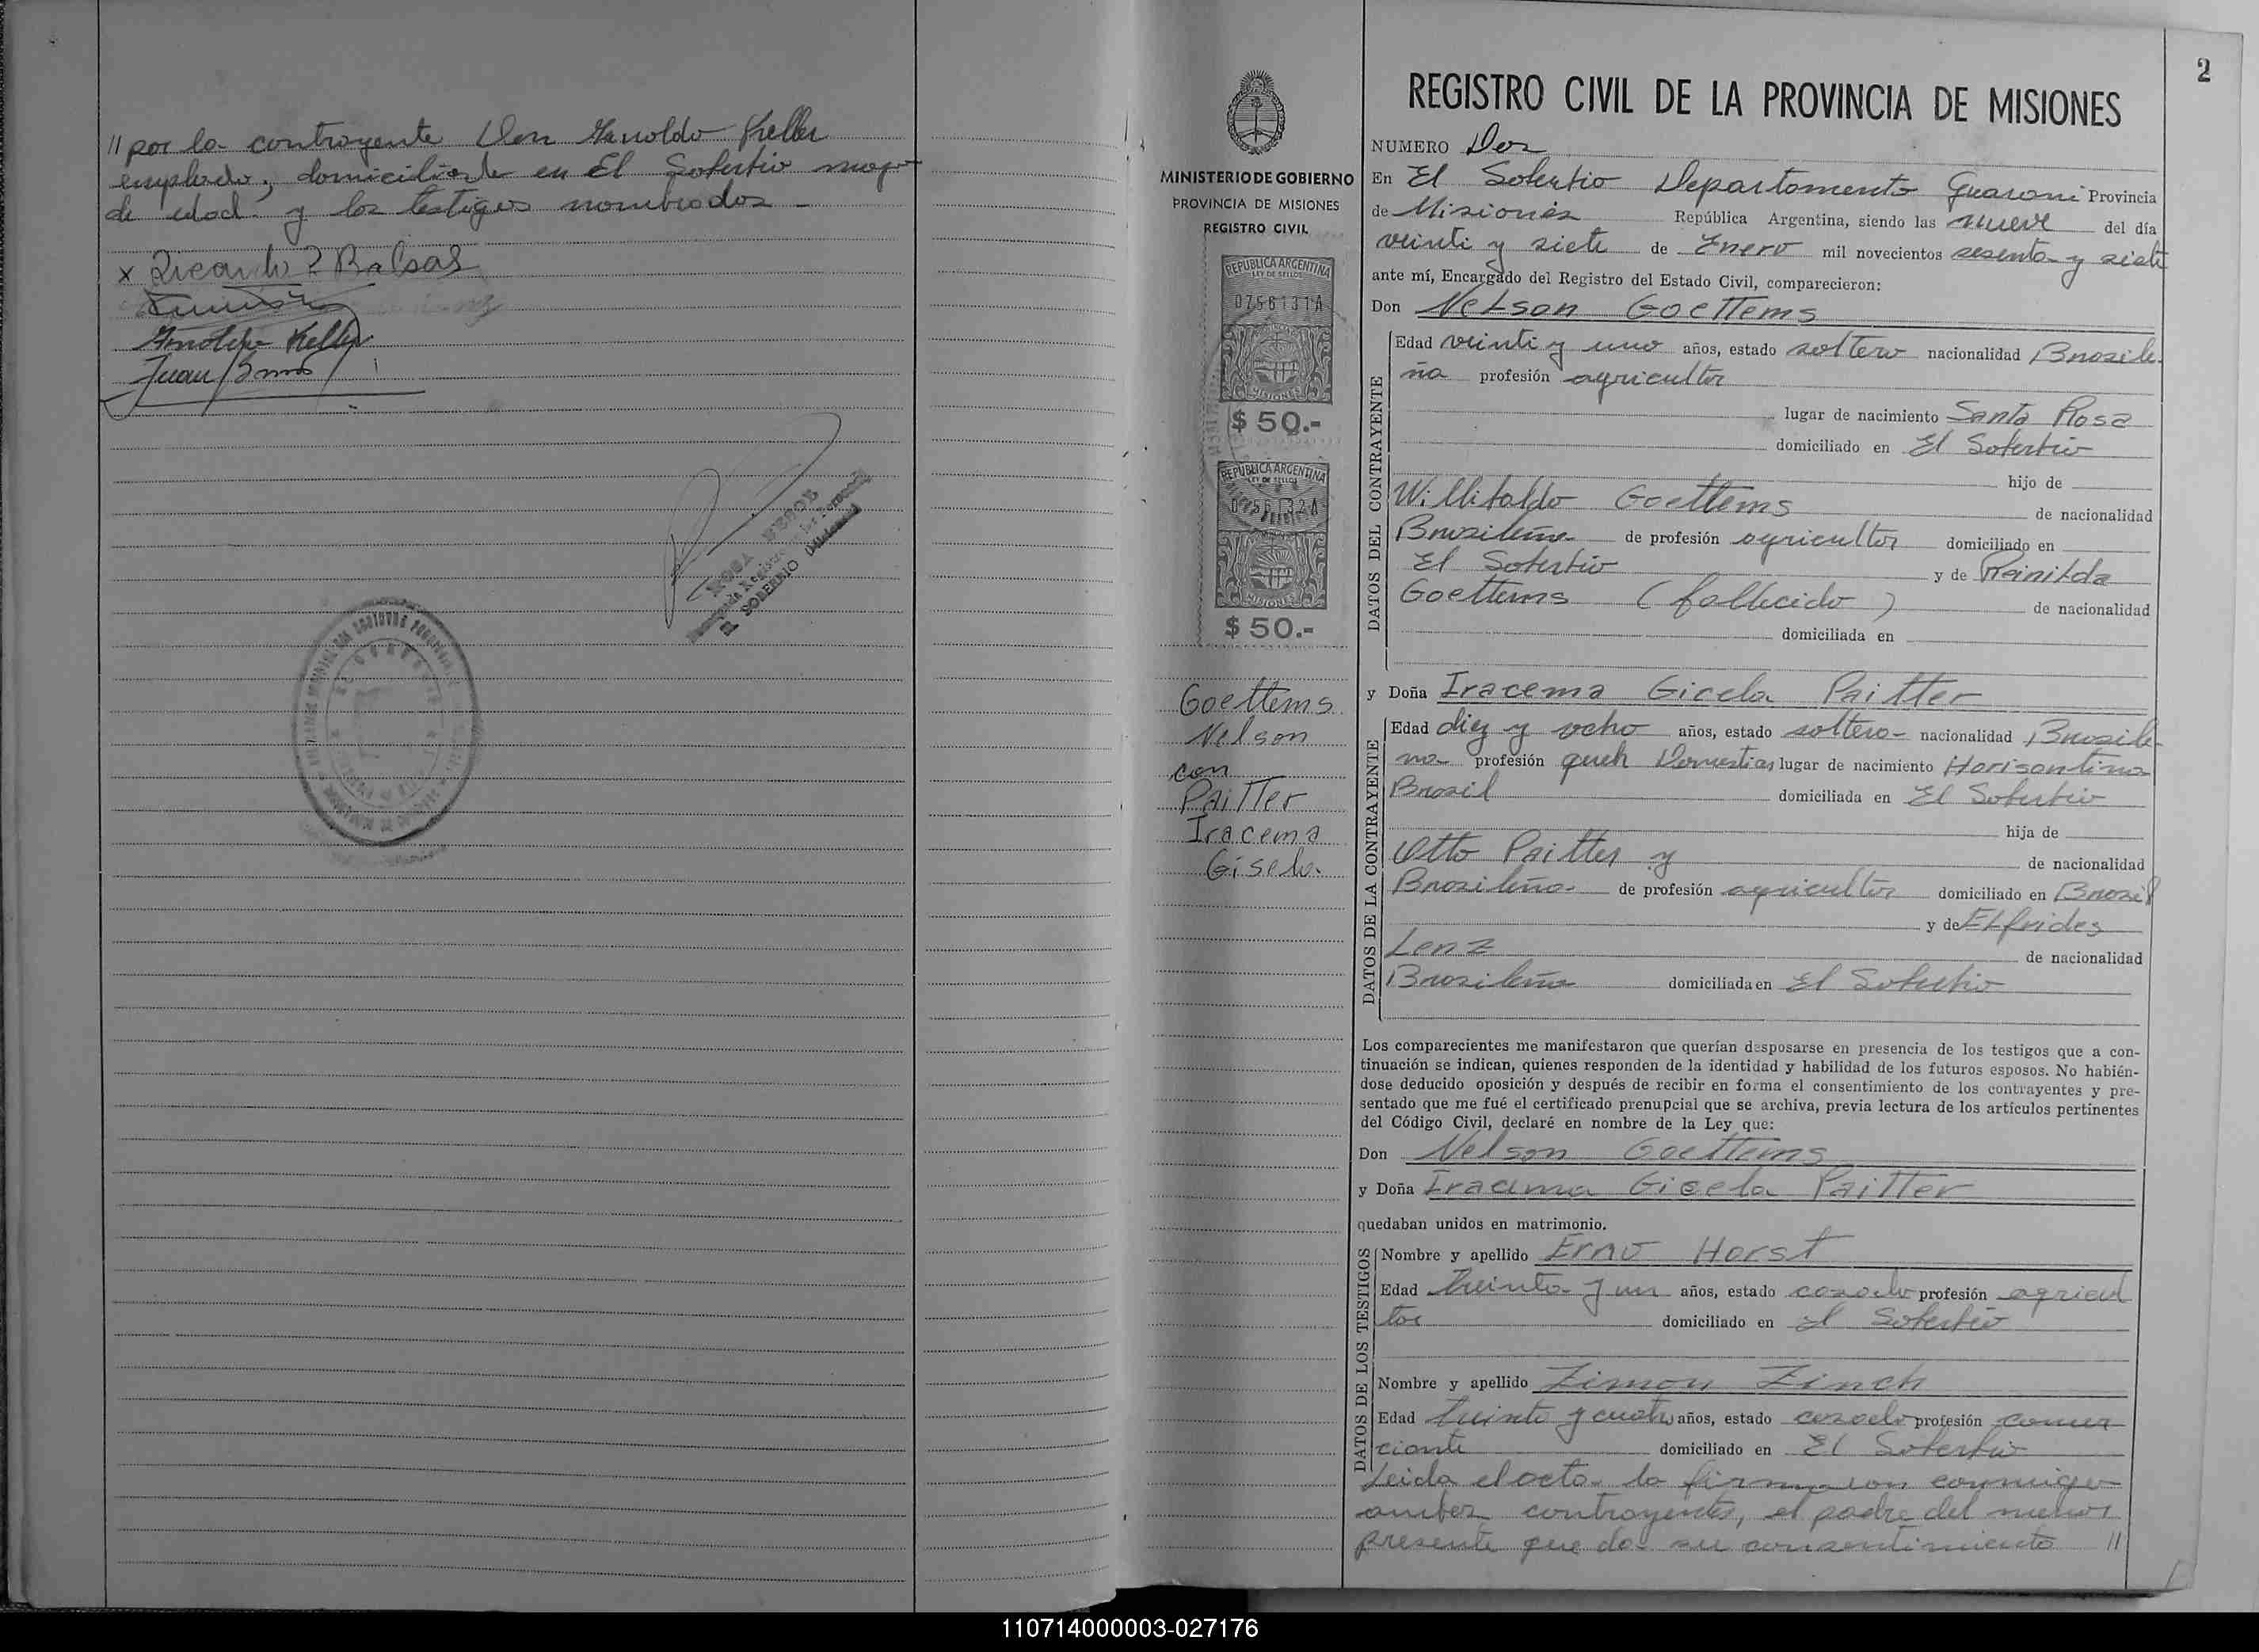 // por la contrayente Don Arnoldo Keller
empleado, domiciliado en El Soberbio mayor
de edad y los testigos nombrados -
x Ricardo Balsas
Keller
Juan
ROSA
EL SOBERBIO (Misiones)
2
REGISTRO CIVIL DE LA PROVINCIA DE MISIONES
MINISTERIO DE GOBIERNO
PROVINCIA DE MISIONES
REGISTRO CIVIL
REPUBLICA ARGENTINA
LEY DE SELLOS
0756131A
MISIONES
$ 50.-
REPUBLICA ARGENTINA
LEY DE SELLOS
MISIONES
$ 50.-
Goettems
Nelson
con
Paitter
Iracema
Gisela
NUMERO Dos
En El Soberbio Departamento Guarani Provincia
de Misiones República Argentina, siendo las nueve del día
veinti y siete de Enero mil novecientos sesenta y siete
ante mí, Encargado del Registro del Estado Civil, comparecieron:
Don Nelson Goettems
DATOS DEL CONTRAYENTE
Edad veinti y uno años, estado soltero nacionalidad Brasile-
ña profesión agricultor
lugar de nacimiento Santa Rosa
domiciliado en El Soberbio
hijo de
Willibaldo Goettems de nacionalidad
Brasileña de profesión agricultor domiciliado en
El Soberbio y de Reinilda
Goettems (fallecido) de nacionalidad
domiciliada en
y Doña Iracema Gicela Paitter
DATOS DE LA CONTRAYENTE
Edad diez y ocho años, estado soltera nacionalidad Brasile-
ña profesión queh Domesticas lugar de nacimiento Horisontina
Brasil domiciliada en El Soberbio
hija de
Otto Paitter y de nacionalidad
Brasileña de profesión agricultor domiciliado en Brasil
y de Elfrides
Lenz de nacionalidad
Brasileña domiciliada en El Soberbio
Los comparecientes me manifestaron que querían desposarse en presencia de los testigos que a con-
tinuación se indican, quienes responden de la identidad y habilidad de los futuros esposos. No habién-
dose deducido oposición y después de recibir en forma el consentimiento de los contrayentes y pre-
sentado que me fué el certificado prenupcial que se archiva, previa lectura de los artículos pertinentes
del Código Civil, declaré en nombre de la Ley que:
Don Nelson Goettems
y Doña Iracema Gicela Paitter
quedaban unidos en matrimonio.
DATOS DE LOS TESTIGOS
Nombre y apellido Erno Horst
Edad treinta y un años, estado casado profesión agricul
tor domiciliado en El Soberbio
Nombre y apellido Zimon Zinch
Edad treinta y cuatro años, estado casado profesión comer
ciante domiciliado en El Soberbio
Leida el acta la firmaron conmigo
ambos contrayentes, el padre del menor
presente que da su consentimiento //
110714000003-027176